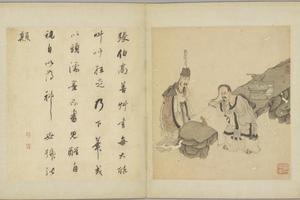 張伯高善草書每大醉
叫呼狂走乃下筆或
以頭濡墨而書既醒自
視自以為神世號張
顛